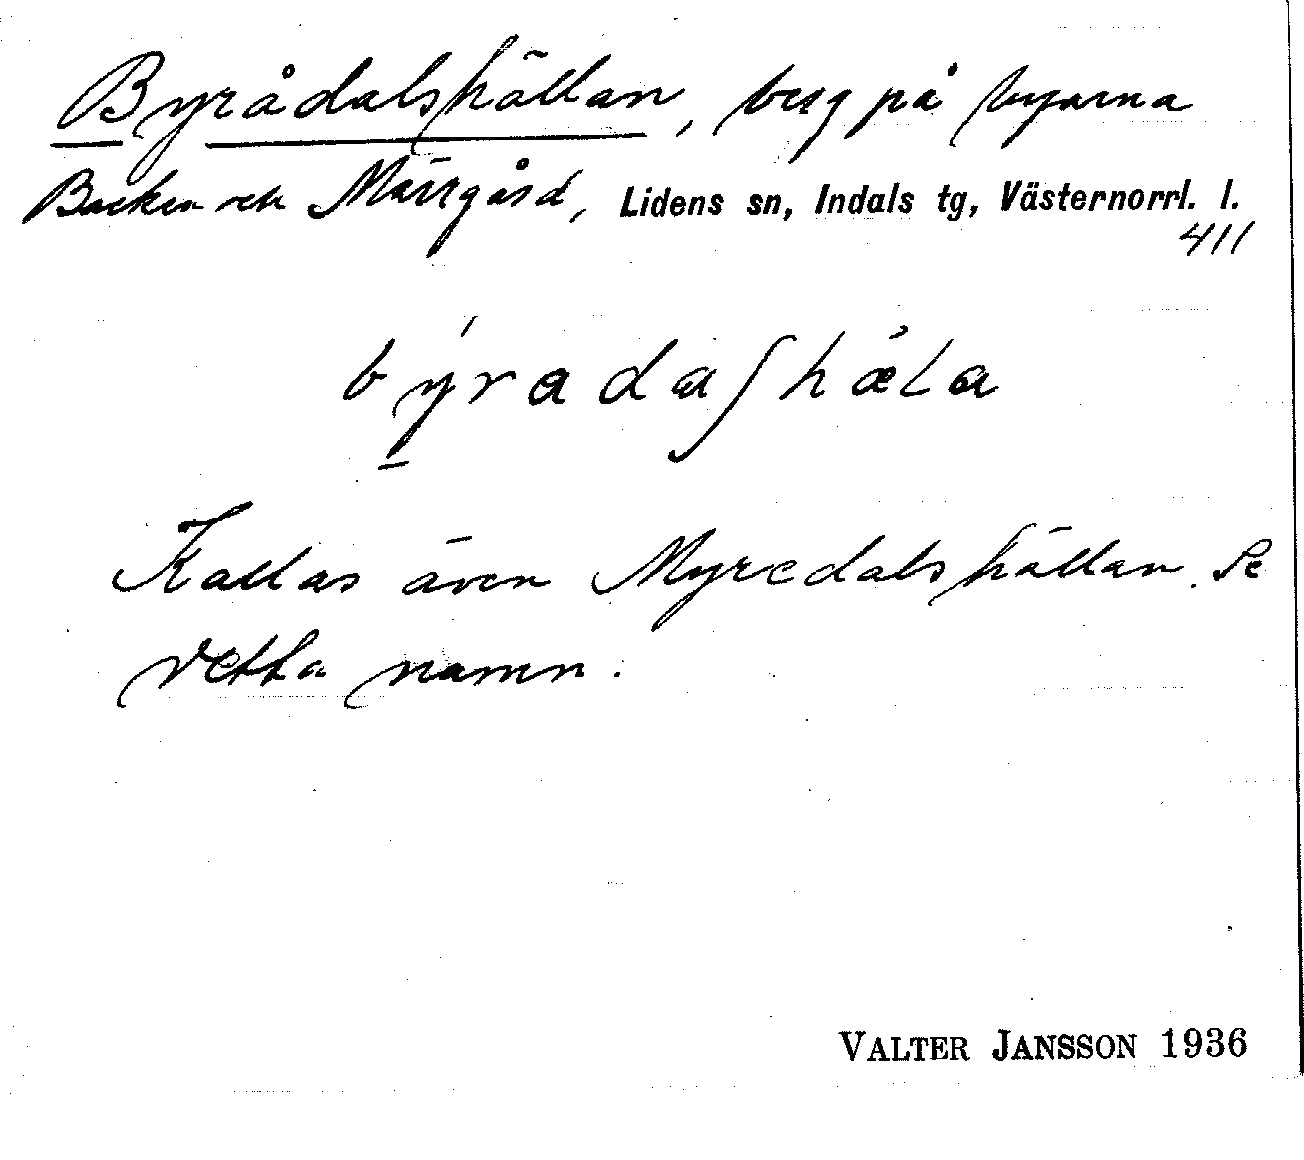 Byrådalshällan, berg på byarna
Backen och Märrgård, Lidens sn, Indals tg, Västernorrl. l.
411
býradaʃhǽla
Kallas även Myredalshällan. Se
detta namn.
VALTER JANSSON 1936